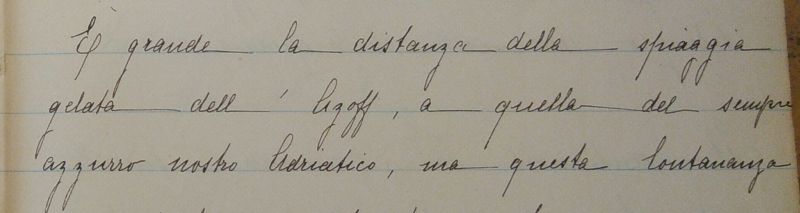 È grande la distanza della spiaggia
gelata dell' Azoff, a quella del sempre
azzurro nostro Adriatico, ma questa lontananza